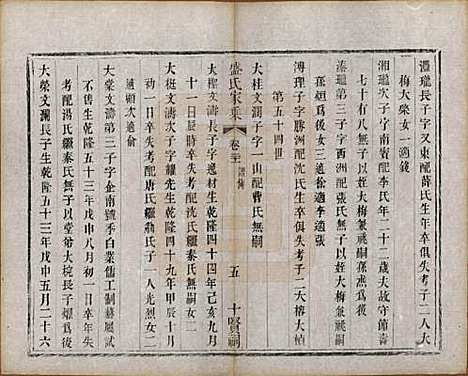 灃瓏長子字又東配薛氏生年卒俱失考子二人大
梅大榮女一適錢
湘瓏次子字南賓配李氏年二十二歲夫故守節壽
七十有八無子以姪大梅兼祧嗣孫燕爲後
溱瓏三子字西洲配張氏無子以姪大梅兼祧嗣
孫烜爲後女三適徐適李適張
溥理子字勝洲配沈氏生卒俱失考子二大榕大楨
第五十四世
大桂文淵子字一山配曹氏無嗣
盛氏家乘
卷三
五
十賢祠
大檉文濤長子字逸材生乾隆四十四年己亥九月
十一日時卒失考配沈氏繼秦氏無嗣女二
大梃文濤次子字耀先生乾隆四十九年甲辰十月
初一日卒失考配唐氏繼勳氏子一人光烈女二
適顧次適俞
大棠文濤第三子字企南號季白業儒工制藝屢試
不售生乾隆五十三年戊申八月初三日卒年失
考配湯氏繼秦氏無子以堂弟大椀長子燿爲後
大榮文瀾長子生乾隆五十三年戊申五月二十六